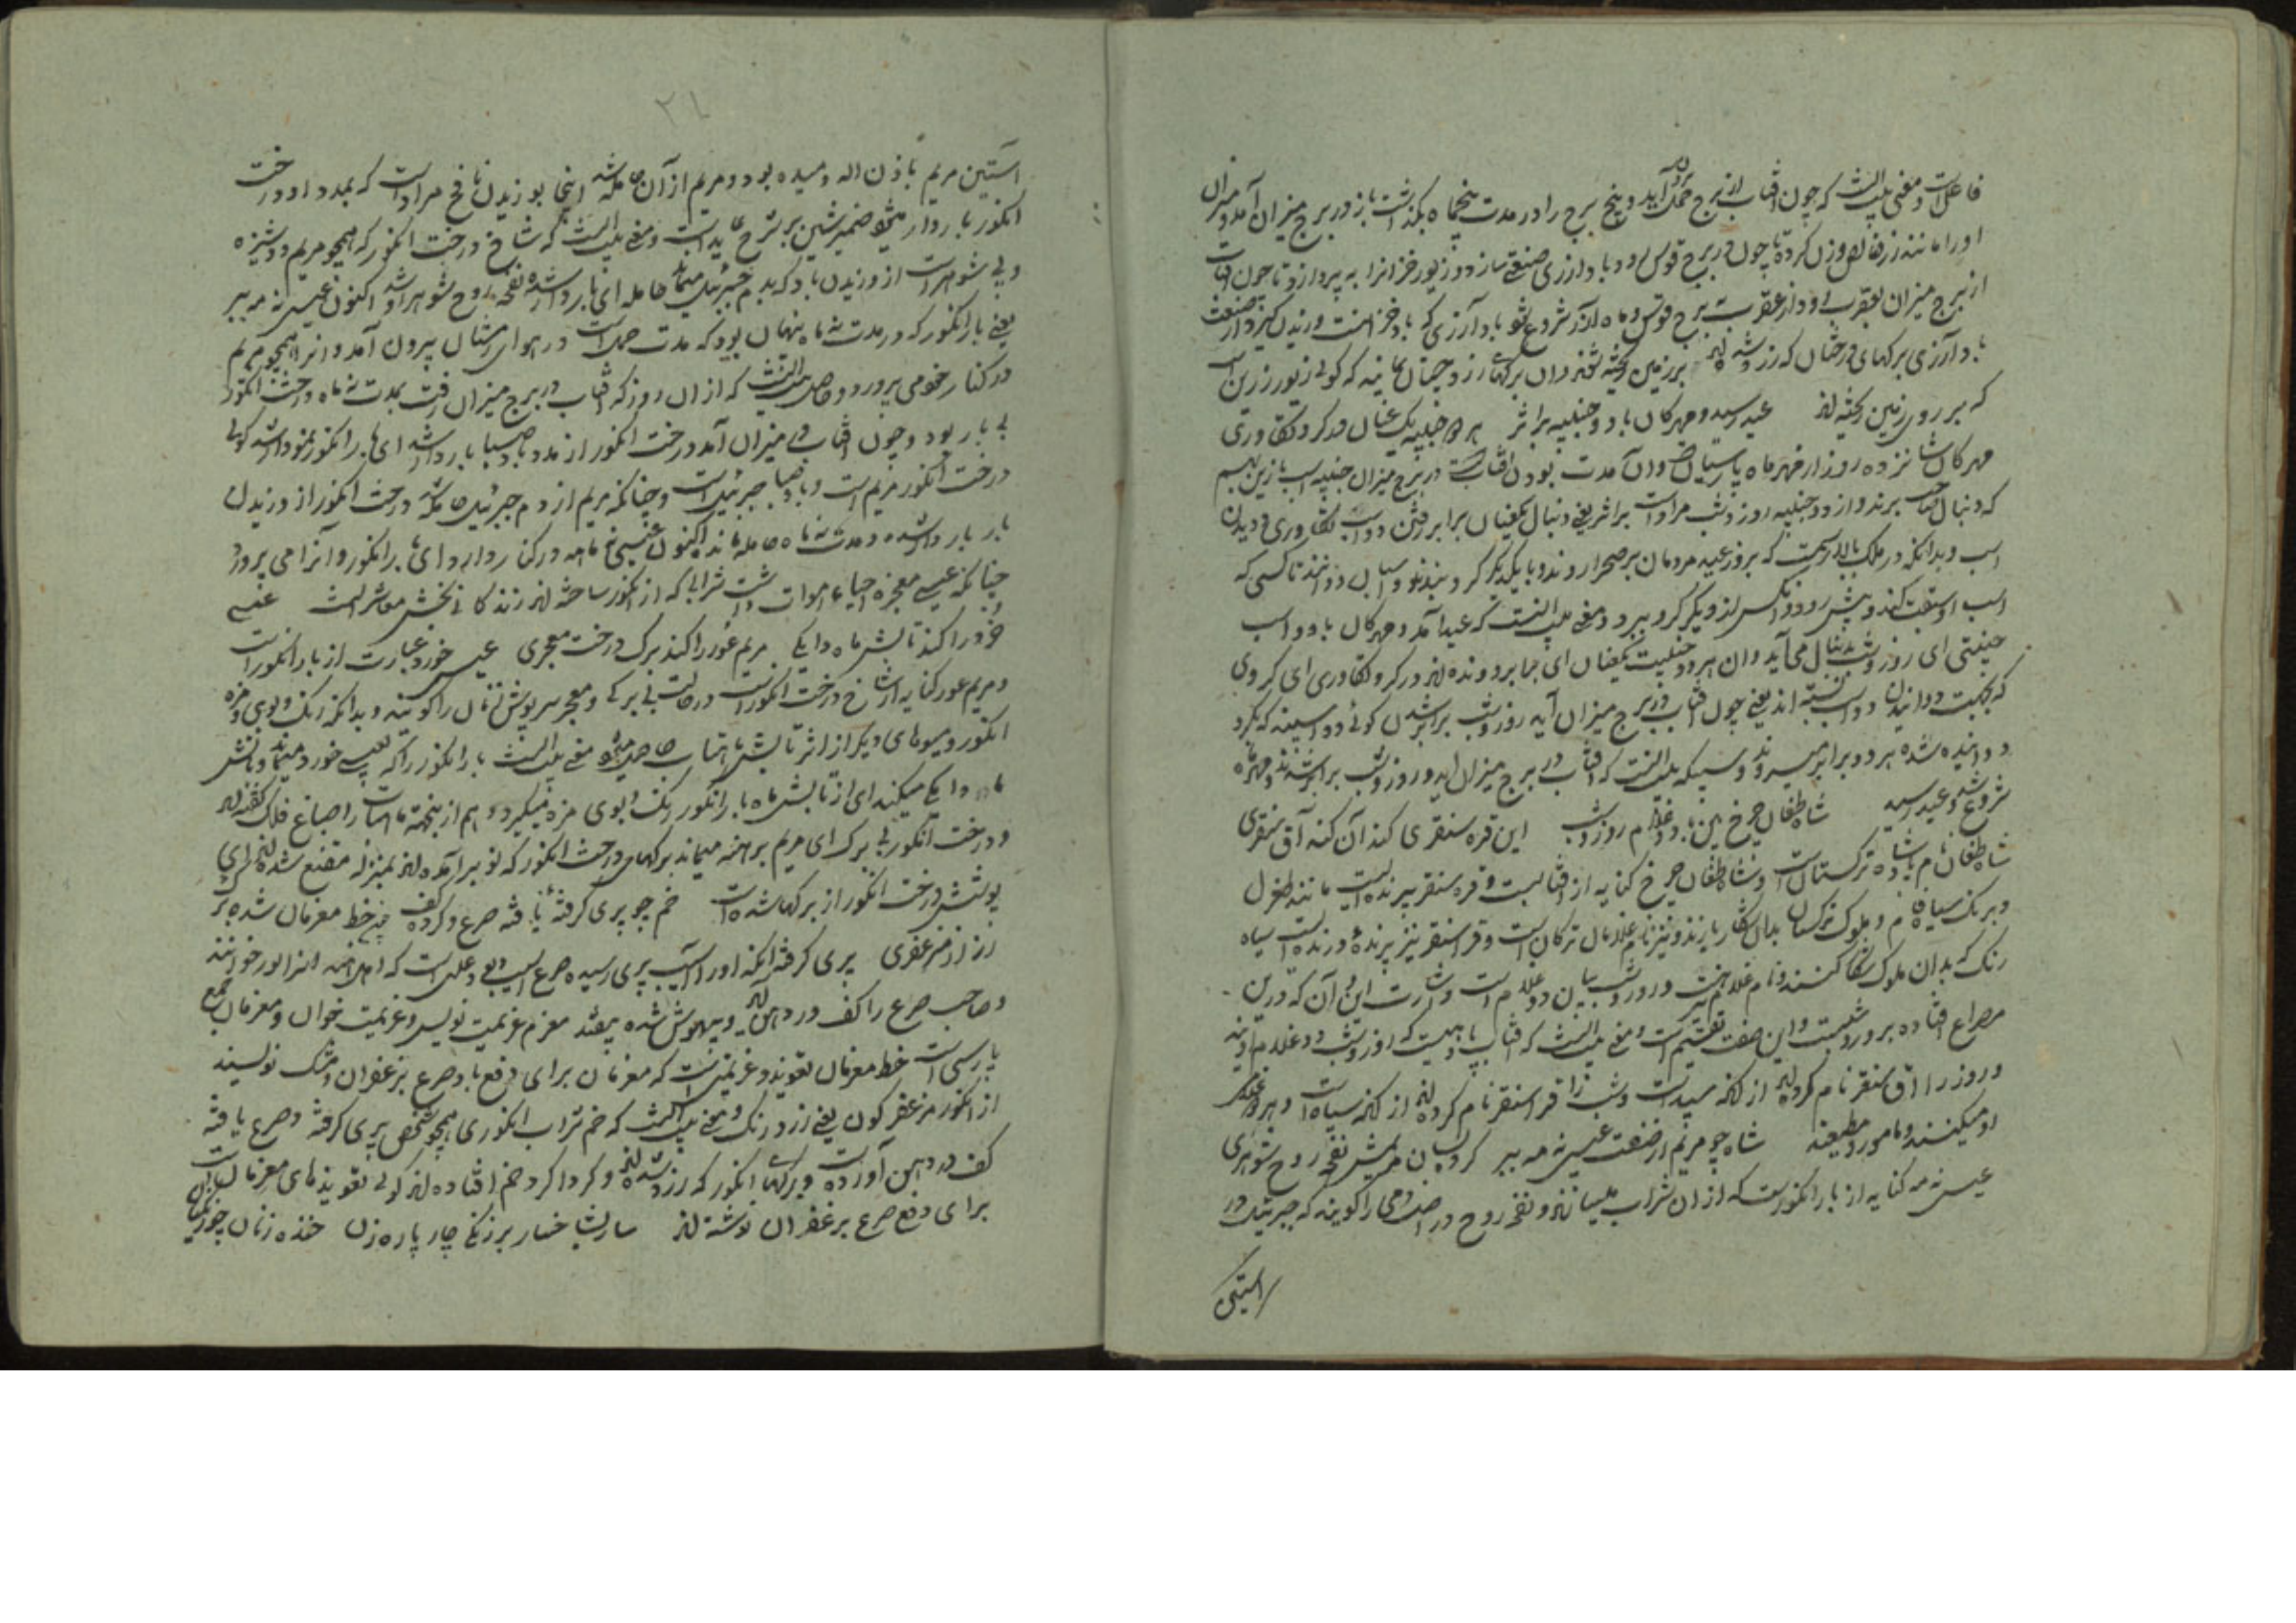 فاعلست و معنی بیت آنست که چون آفتاب از برج حمل برون آید و پنج برج را در مدت پنج ماه بگذاشت باز در برج میزان آمد و میزان
او را مانند زر خالص وزن کرد تا چون در برج قوس رود باد زرگری صنعت سازد و زیور خزانرا به پردازد تا چون آفتاب
از برج میزان بعقرب رود و از عقرب به برج قوس و ماه آذر شروع شود باد آزری که باد خزانست وزیدن گیرد و از صنعت
باد آزری برگهای درختان که زرد شده اند بر زمین ریخته شوند و آن برگهای زرد چنان نماید که گویی زیور زرین است
که بر روی زمین ریخته اند عید رسید و مهرگان باد و جنیبه بر اثر هر دو جنیبه یک عنان در کرو تکاوری
مهرگان شانزده روز از مهر ماه پارسیان و آن مدت بودن آفتابست در برج میزان جنیبه اسب با زین بهم
که دنبال صاحب برند و از دو جنیبه روز و شب مرادست بر اثر یعنی دنبال یکعنان برابر رفتن دو اسب تکاوری دویدن
اسب و بدانکه در ملک بالا رسمست که بروز عید مردمان بر صحرا روند و با یکدیگر گرو بندند و اسپان دوانند تا کسی که
اسب او سبقت کند و پیش رود و آنکس از دیگر گرو ببرد و معنی بیت آنست که عید آمد و مهرگان با دو اسب
جنیبتی ای روز و شب بدنبال می آید و آن هر دو جنیبت یکعنان ای همبر رونده اند در کرو تکاوری ای گروی
که بجهت دوانیدن دو اسب بسته اند یعنی چون آفتاب در برج میزان آید روز و شب برابر شدن گوئی دو اسپند که بگرو
دوانیده شده هر دو برابر میروند و سبک بیت آنست که آفتاب در برج میزان آمد و روز و شب برابر شدند و مهرماه
شروع شد و عید رسید شاه طغان چرخ بین با دو غلام روز و شب این قره سنقری کند آن کند آق سنقری
شاه طغان نام پادشاه ترکستانست و شاه طغان چرخ کنایه از آفتابست و قره سنقر پرنده ایست مانند طغرل
و برنگ سیاه فام و ملوک ترکستان بدان شکار بازند و نیز نام غلامان ترکان است و قرا سنقر نیز پرندهٔ درنده است سیاه
رنگ که بدان ملوک شکار کنند و نام غلام نیز هست و روز و شب بیان دو غلام است و اشارت این و آن که درین
مصراع افتاده بروز و شبست و این صفت تقسیم است و معنی بیت آنست که آفتاب پادشاهیست که روز و شب دو غلام اویند
و روز را آق سنقر نام کرده اند از آنکه سپیدست و شب را قرا سنقر نام کرده اند از آنکه سیاهست و هر دو عمل
او میکنند و مامور و مطیعند شاه چو مریم از صنعت عیسی نه مه ببر کرده بسان مریمش نفخه روح شوهری
عیسی نه مه کنایه از بار انگورست که از آن شراب میسازند و نفخه روح در اصل دمی را گویند که جبرئیل در
آستین
۲۱
آستین مریم باذن الله دمیده بود و مریم از آن حامله شد اینجا بوزیدن نافخ مراد است که بمدد او درخت
انگور باردار میشود ضمیر شین بر شرح عایدست و معنی بیت آنست که شاخ درخت انگور که همچو مریم دوشیزه
و بی شوهرست از وزیدن باد که بدم جبرئیل میماند حامله ای باردار شده نفخه روح شوهر او شد اکنون عیسی نه مه ببر
یعنی بار انگور که در مدت نه ماه پنهان بود که مدت حمل است در هوای زمستان بیرون آمد و آنرا همچو مریم
در کنار خود می پرورد و حاصل بیت آنست که از آن روز که آفتاب در برج میزان رفت بمدت نه ماه درخت انگور
بی بار بود و چون آفتاب در میزان آمد درخت انگور از مدد باد صبا باردار شد ای بار انگور نمودار شد گوئی
درخت انگور مریم است و باد صبا جبرئیل است و چنانکه مریم از دم جبرئیل حامله شد درخت انگور از وزیدن
باد باردار شده و مدت نه ماه حامله ماند اکنون عیسی نه ماهه در کنار دارد ای بار انگور و آنرا می پرورد
چنانکه عیسی معجزه احیاء اموات داشت شرابی که از انگور ساخته اند زندگانی بخش معاشرانست عیسی
خرد را کند تابش ماه دایگی مریم عور را کند برگ درخت معجری عیسی خورد عبارت از بار انگور است
و مریم عور کنایه از شاخ درخت انگورست در حالت بی برگی و معجر سرپوش زنان را گویند و بدانکه رنگ و بوی و مزه
انگور و میوهای دیگر از اثر تابش ماهتاب حاصل میشود معنی بیت آنست بار انگور را که بعیسی خورد میماند تابش
ماه دایگی میکند ای از تابش ماه بار انگور رنگ و بوی و مزه میگیرد و هم از ینجهت ماهتاب را صباغ فلک گفته اند
و درخت انگور بی برگ ای مریم برهنه میماند برگهای درخت انگور که نو برآمده اند بمنزله مقنع شده اند ای
پوشش درخت انگور از برگها شده است خم چو پری گرفته یافته صرع و کرده کف خط معزمان شده برگ
رز از مزعفری پری گرفته آنکه او را آسیب پری رسیده صرع آسیب دیو و علتی است که اهل هند آنرا خوانند
و صاحب صرع را کف در دهن آید و بیهوش شده بیفتد معزم عزیمت نویس و عزیمت خوان و معزمان جمع
پارسی است خط معزمان تعویذ و عزیمتست که معزمان برای دفع باد صرع بزعفران و مشک نویسند
از انگور مزعفر گون یعنی زرد رنگ و معنی بیت آنست که خم شراب انگوری همچو شخص پری گرفته و صرع یافته
کف در دهن آورده است و برگهای انگور که زرد شده اند و گرداگرد خم افتاده اند گوئی تعویذهای معزمانست
برای دفع صرع بزعفران نوشته اند سار بشاخسار بر زنگی چار پاره زن خنده زنان چو زنگیان